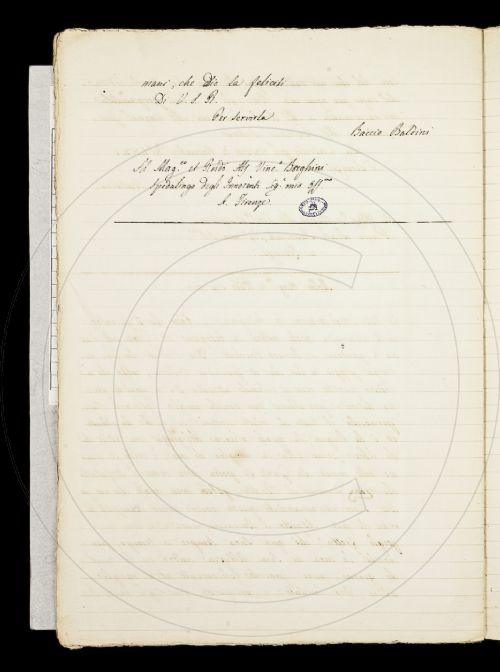 mani, che Dio la feliciti
Di V. S. R.
Per servirla
Baccio Baldini
Al Mag.co et Revdo Ms Vinc.o Borghini
Spedalingo degli Innocenti Sig.r mio
A Firenze